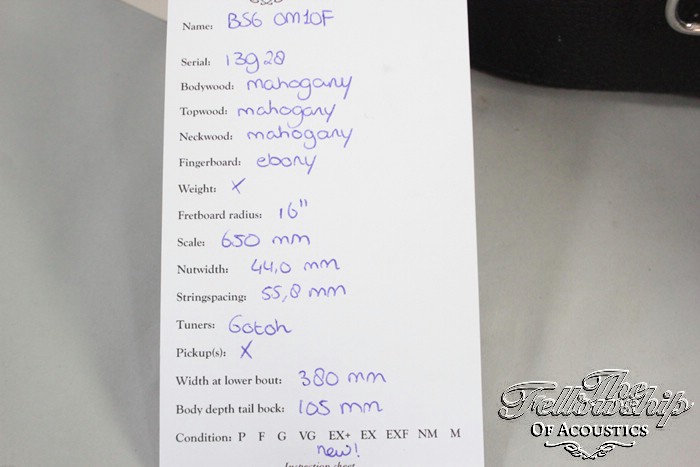 Name: BSG OM10F
Serial: 13928
Bodywood: mahogany
Topwood: mahogany
Neckwood: mahogany
Fingerboard: ebony
Weight: X
Fretboard radius: 16"
Scale: 650 mm
Nutwidth: 44,0 mm
Stringspacing: 55,8 mm
Tuners: Gotoh
Pickup(s): X
Width at lower bout: 380 mm
Body depth tail bock: 105 mm
Condition: P F G VG EX+ EX EXF NM M
new!
Inspection sheet
The
Fellowship
OF ACOUSTICS